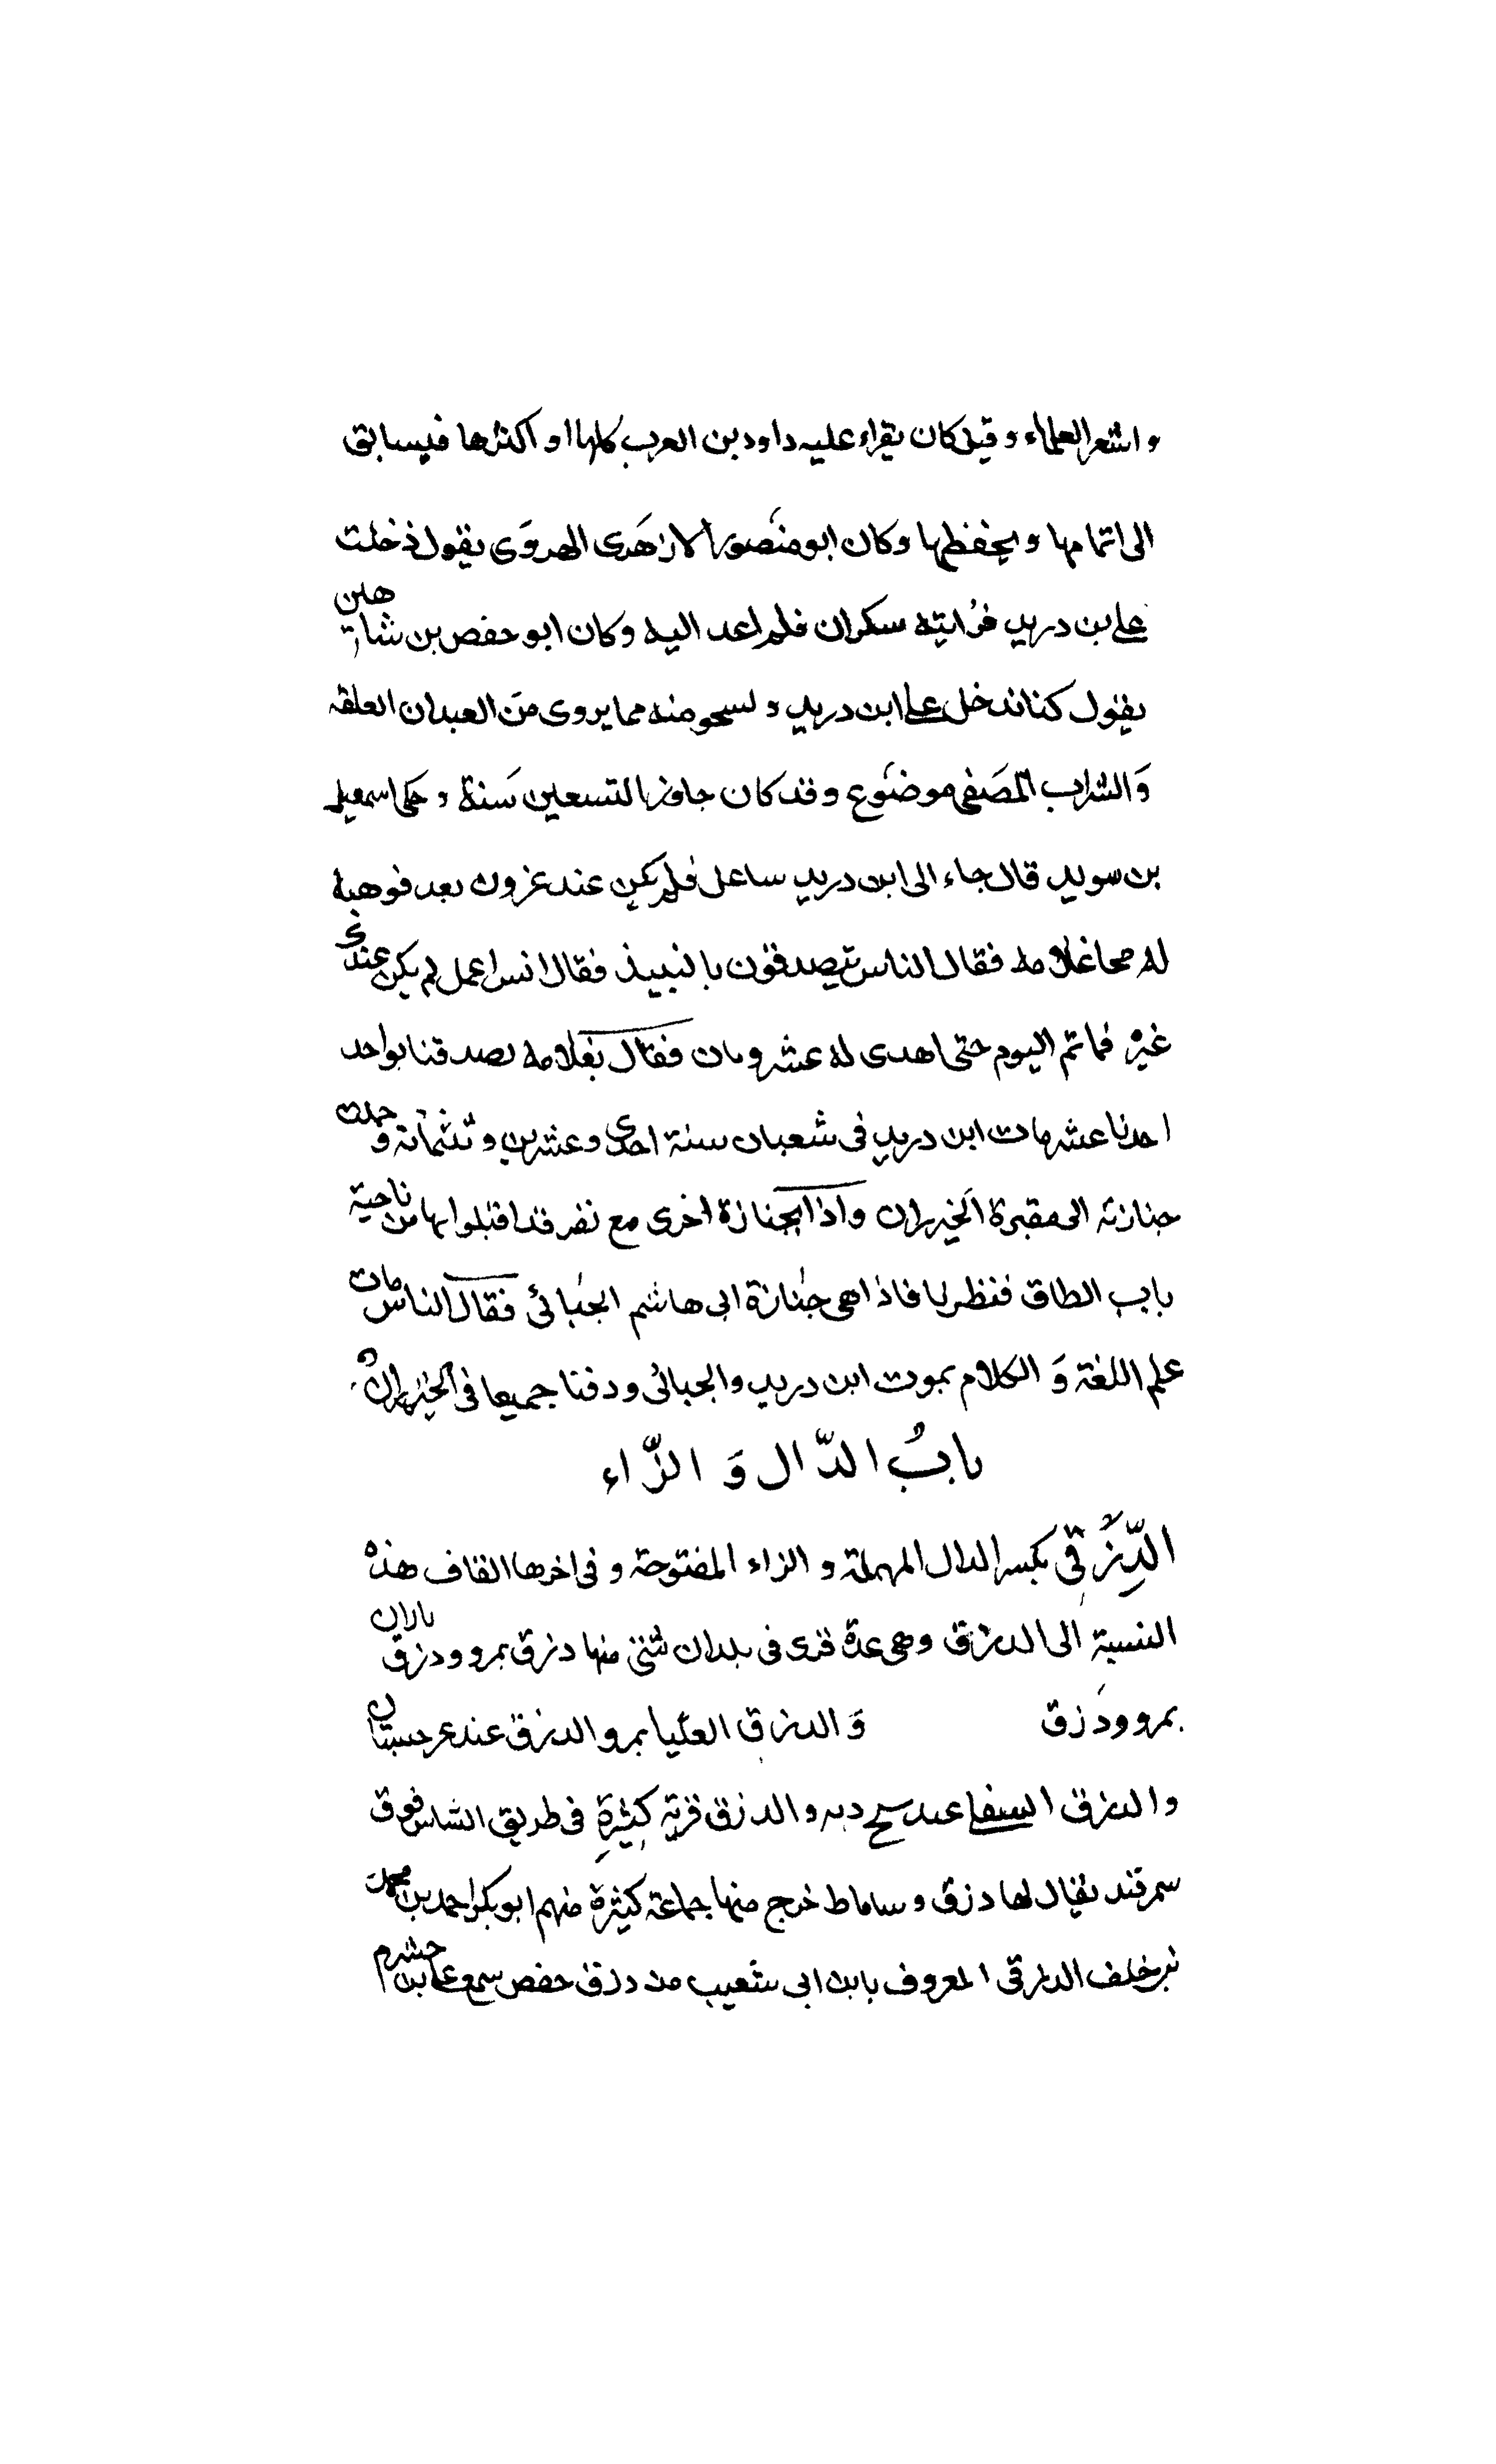 واشعر العلماء وقيل كان يقراء عليه داود بن العرب كلها او اكثرها فيسابق
الى اتمامها ويحفظها وكان ابو منصور الازهَرى الهروَى يقول ذخلت
على بن دريد فرُايته سكران فلم اعد اليه وكان ابو حفص بن شارهين
يقول كنا ندخل على ابن دريد ولسحو منه مما يروى من العبدان العلقه
وَالشراب المصَفى موضوع وقد كان جاوز التسعين سَنة وحكى اسمعيل
بن سويد قال جاء الى ابن دريد ساعل فلم يكن عند عزون بعد فوهبه
له محا غلامه فقال الناس تيصدقون بالنبيذ فقال انس اعمل لم يكن عندى
غيره فما تم اليوم حتى اهدى له عشرومان فقال بغلامه تصدقنا بواحد
احدنا عشر مات ابن دريد فى شعبان سنة احدى وعشرين وثلثمائة وحملت
جنازته الى مقبرة الخيرران واذا بجنازة اخرى مع نفر قد اقبلوا بها من ناحية
باب الطاق فنظرنا فاذا هى جنازة ابى هاشم الجُبائى فقال الناس مات
علم اللغة وَ الكلام بموت ابن دريد والجبائى ودفنا جميعا فى الخيزران
بابُ الدّال وَ الزّاء
الدِّزَقى بكسر الدال المهملة و الزاء المفتوحة و فى اخرها القاف هذه
النسبة الى الدزق وهى عدة قرى فى بلدان شتى منها دزق بمرو ودزق باران
بمرو ودَزق وَ الدزق العليا بمرو الدزق عند
والدزق السفلى عند ديه والدزق قرية كثيرةٍ فى طريق الشاس فوق
سمرقند يقال لها دزق وساماط خرج منها جماعة كثيرة منهم ابو بكر احمد بن محمد
بن خلف الدزقى المعروف بابن ابى شعيب من دزق حفص سمع على بن خشرم